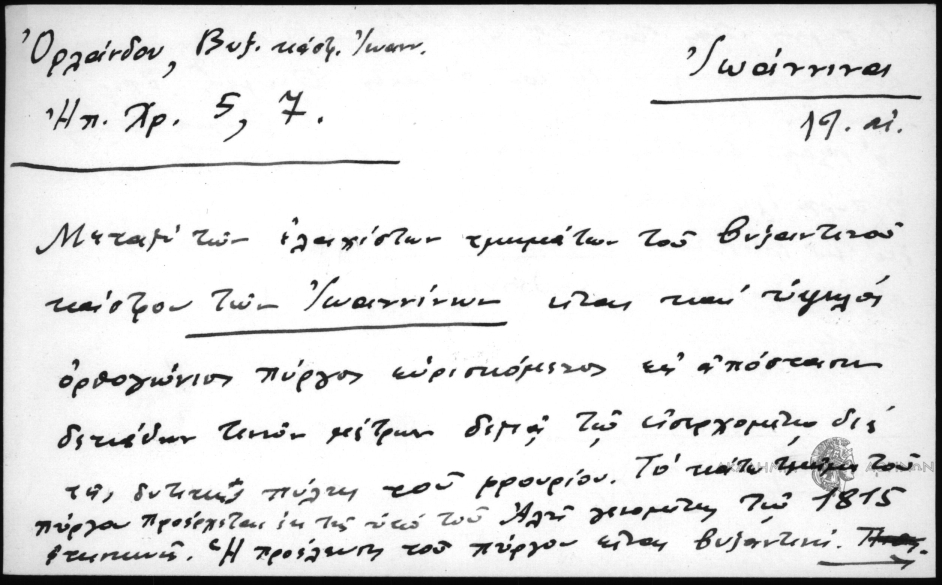 Ὀρλάνδου, Βυζ. κάστρ. Ἰωανν.
Ἠπ. Χρ. 5, 7.
Ἰωάννινα
19. αἰ.
Μεταξύ τῶν ἐλαχίστων τμημάτων τοῦ βυζαντινοῦ
κάστρου τῶν Ἰωαννίνων εἶναι καί ὑψηλός
ὀρθογώνιος πύργος εὑρισκόμενος εἰς ἀπόστασιν
δεκάδων τινῶν μέτρων δεξιᾷ τῷ εἰσερχομένῳ διά
τῆς δυτικῆς πύλης τοῦ φρουρίου. Τό κάτω τμῆμα τοῦ
πύργου προέρχεται ἐκ τῆς ὑπό τοῦ Ἀλῆ γενομένης τῷ 1815
ἐπισκευῆς. Ἡ προέλευσις τοῦ πύργου εἶναι βυζαντινή.